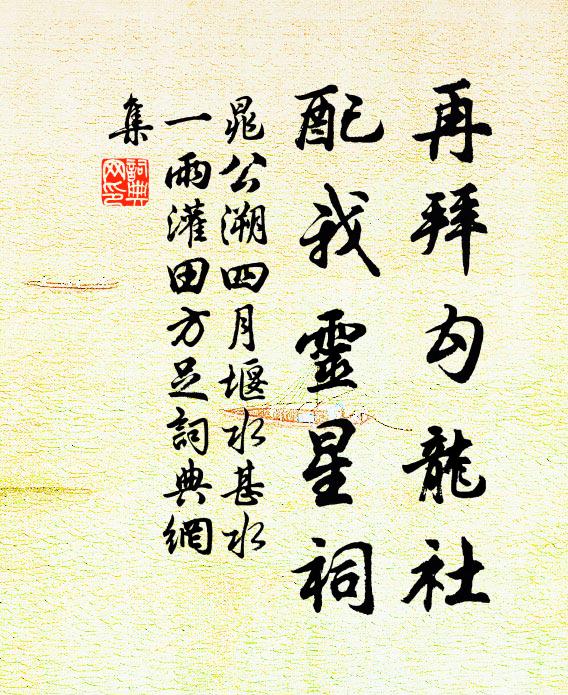 再拜勾龍社
配我靈星祠
晁公溯四月堰水甚水
一雨灌田方足詞典網
集
詞典
網印